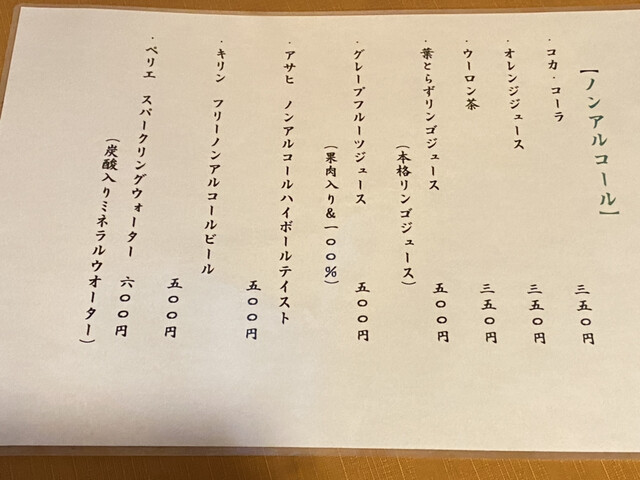 【ノンアルコール】
・コカ・コーラ 三五〇円
・オレンジジュース 三五〇円
・ウーロン茶 三五〇円
・葉とらずリンゴジュース 五〇〇円
（本格リンゴジュース）
・グレープフルーツジュース 五〇〇円
（果肉入り&一〇〇%）
・アサヒ ノンアルコールハイボールテイスト
五〇〇円
・キリン フリーノンアルコールビール
五〇〇円
・ペリエ スパークリングウォーター 六〇〇円
（炭酸入りミネラルウオーター）